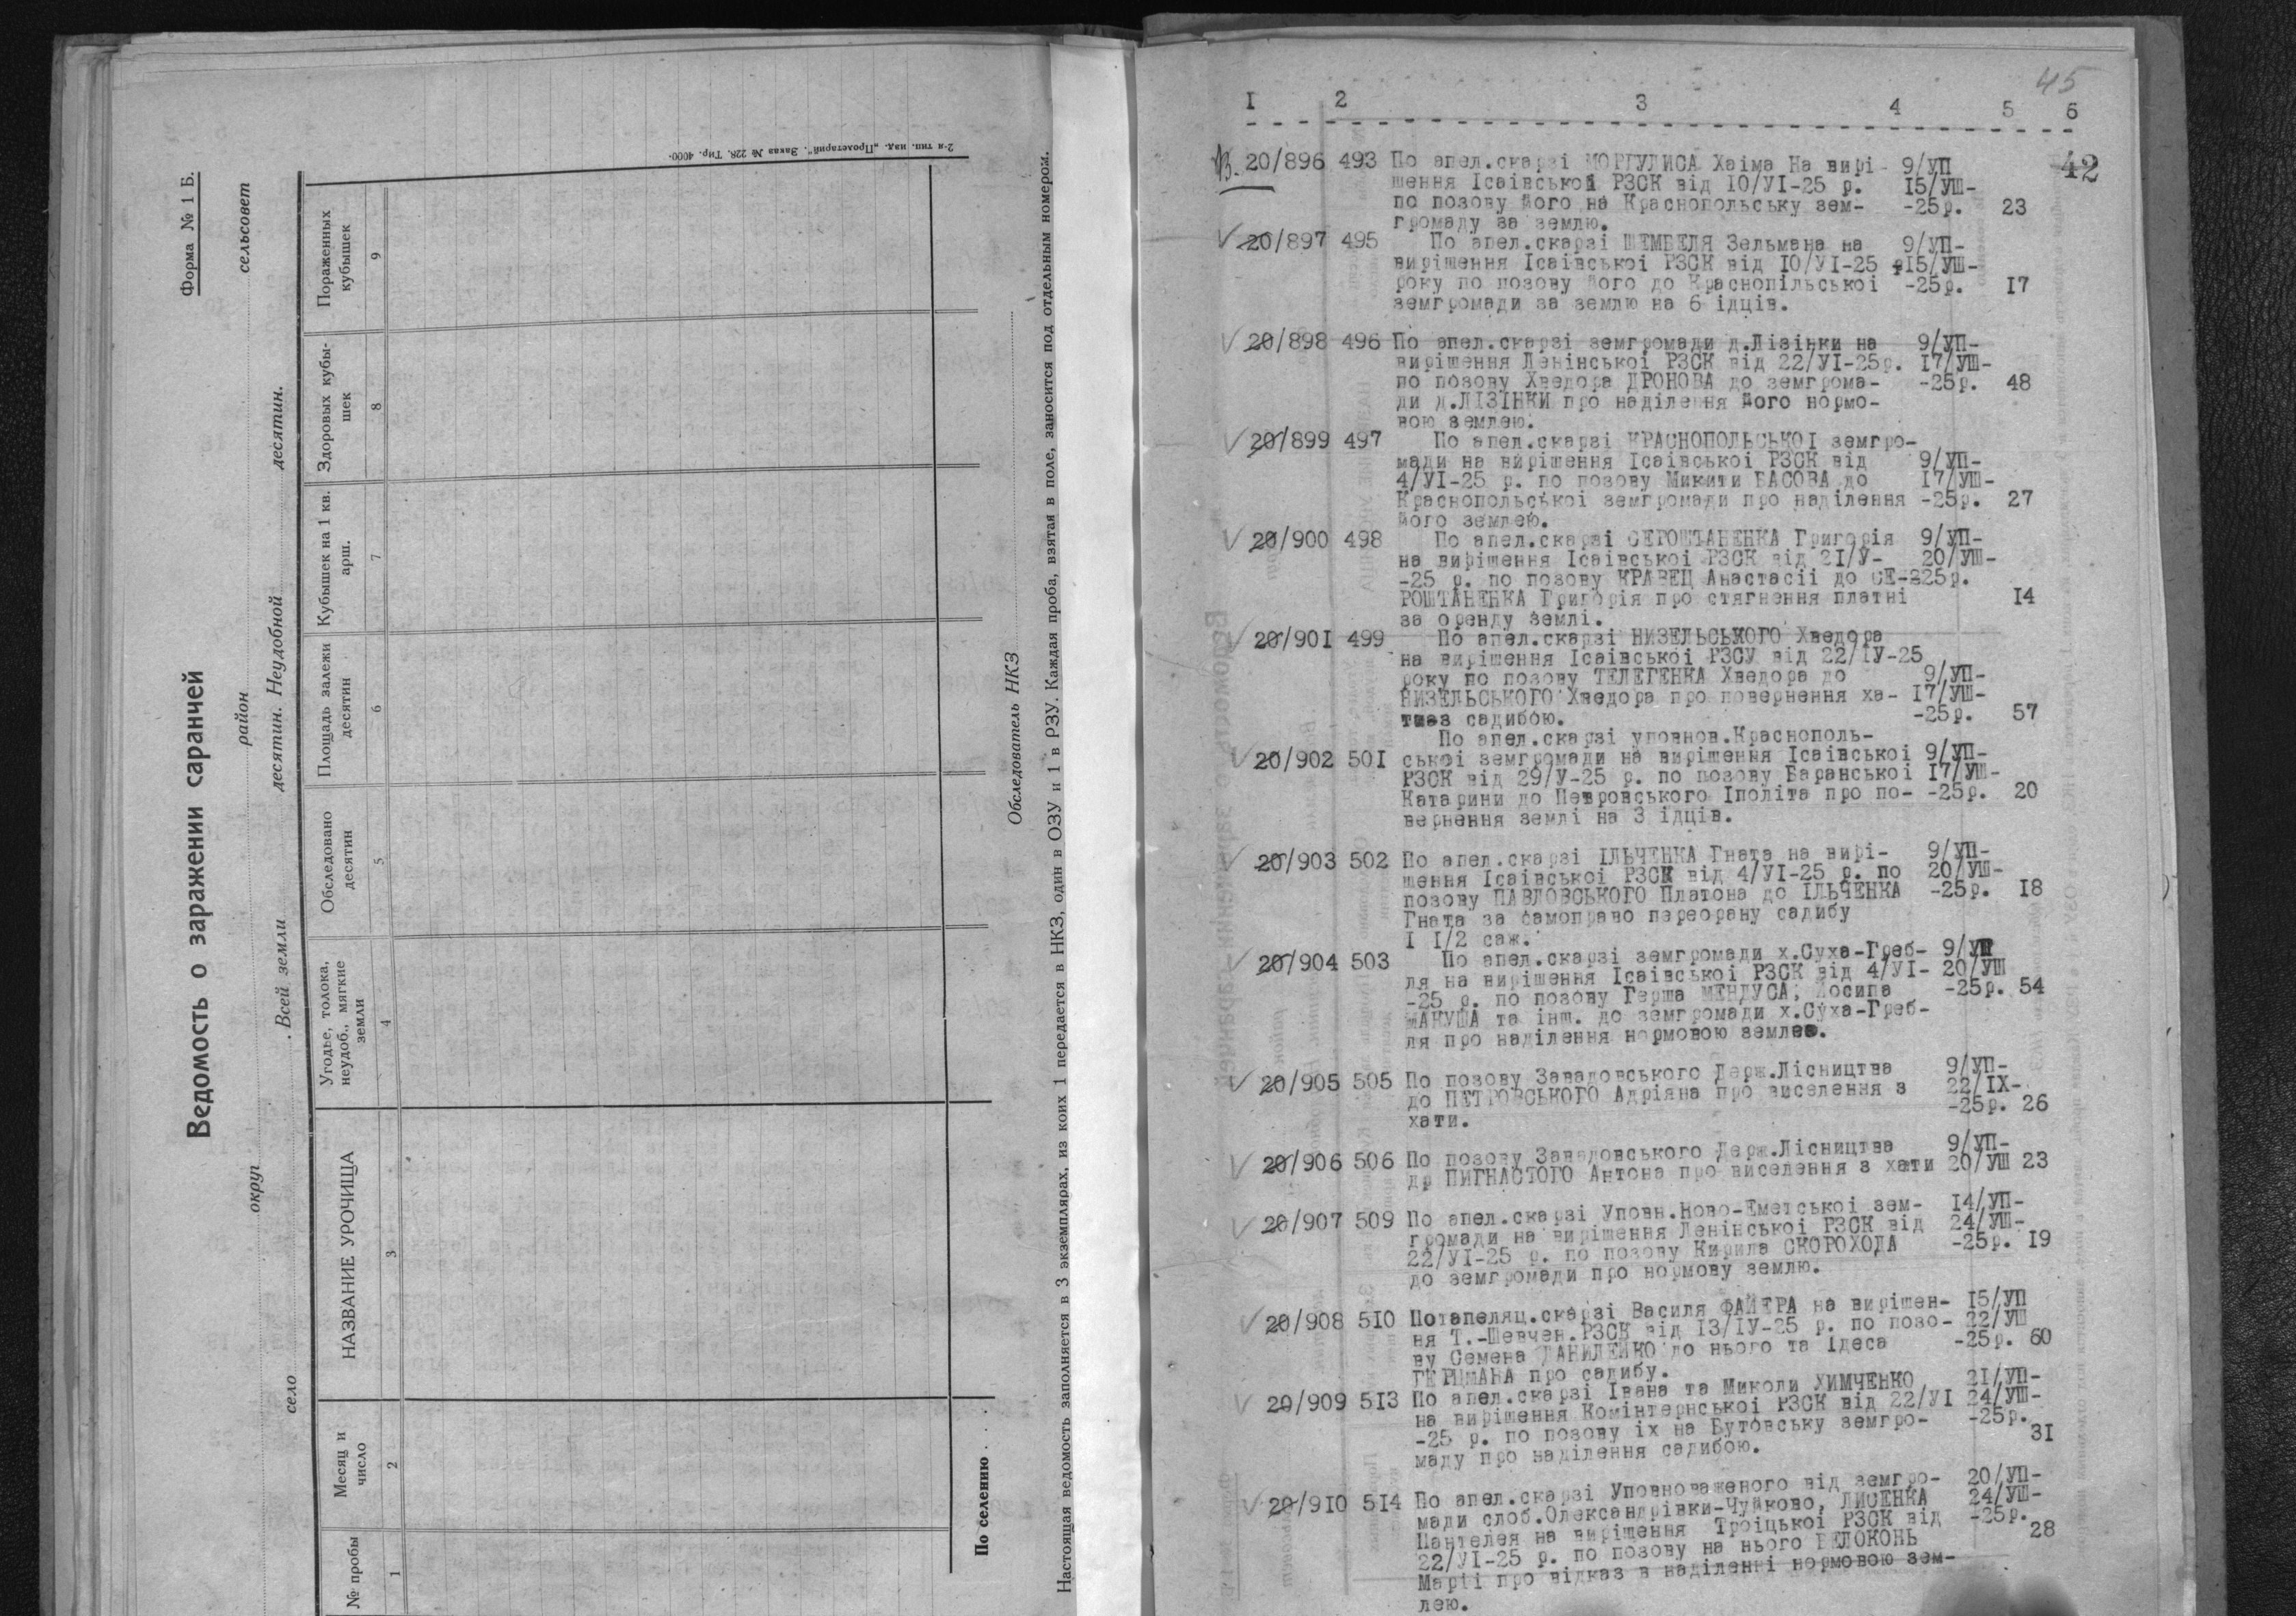 Форма № 1 Б.
Ведомость о заражении саранчей
село округ район сельсовет
Всей земли десятин. Неудобной десятин.
№ пробы
Месяц и число
НАЗВАНИЕ УРОЧИЩА
Угодье, толока, неудоб., мягкие земли
Обследовано десятин
Площадь залежи десятин
Кубышек на 1 кв. арш.
Здоровых кубышек
Пораженных кубышек
1 2 3 4 5 6 7 8 9
По селению . . .
Обследователь НКЗ
Настоящая ведомость заполняется в 3 экземплярах, из коих 1 передается в НКЗ, один в ОЗУ и 1 в РЗУ. Каждая проба, взятая в поле, заносится под отдельным номером.
2-я тип. изд. „Пролетарий“. Заказ № 228. Тир. 4000.
45
I 2 3 4 5 6
42
20/896 493 По апел.скарзі МОРГУЛИСА Хаіма На вирі- 9/УП
шення Ісаівськоі РЗСК від I0/УI-25 р. I5/УШ-
по позову його на Краснопольську зем- -25р. 23
громаду за землю.
20/897 495 По апел.скарзі ШЕМБЕЛЯ Зельмана на 9/УП-
вирішення Ісаівськоі РЗСК від I0/УI-25 I5/УШ-
року по позову його до Краснопільськоі -25р. I7
земгромади за землю на 6 ідців.
20/898 496 По апел.скарзі земгромади д.Лізінки на 9/УП-
вирішення Ленінськоі РЗСК від 22/УI-25р. I7/УШ-
по позову Хведора ДРОНОВА до земгрома- -25р. 48
ди д.ЛІЗІНКИ про наділення його нормо-
вою землею.
20/899 497 По апел.скарзі КРАСНОПОЛЬСЬКОІ земгро-
мади на вирішення Ісаівськоі РЗСК від 9/УП-
4/УI-25 р. по позову Микити БАСОВА до I7/УШ-
Краснопольськоі земгромади про наділення -25р. 27
його землею.
20/900 498 По апел.скарзі СЕРОШТАНЕНКА Григорія 9/УП-
на вирішення Ісаівськоі РЗСК від 2I/У- 20/УШ-
-25 р. по позову КРАВЕЦ Анастасіі до СЕ- 25р.
РОШТАНЕНКА Григорія про стягнення платні I4
за оренду землі.
20/90I 499 По апел.скарзі НИЗЕЛЬСЬКОГО Хведора
на вирішення Ісаівськоі РЗСУ від 22/IУ-25
року по позову ТЕЛЕГЕНКА Хведора до 9/УП-
НИЗЕЛЬСЬКОГО Хведора про повернення ха- I7/УШ-
садибою. -25р. 57
По апел.скарзі уповнов.Краснополь-
20/902 50I ськоі земгромади на вирішення Ісаівськоі 9/УП-
РЗСК від 29/У-25 р. по позову Баранськоі I7/УШ-
Катарини до Петровського Іполіта про по- -25р. 20
вернення землі на 3 ідців.
20/903 502 По апел.скарзі ІЛЬЧЕНКА Гната на вирі- 9/УП-
шення Ісаівськоі РЗСК від 4/УI-25 р. по 20/УШ-
позову ПАВЛОВСЬКОГО Платона до ІЛЬЧЕНКА -25р. I8
Гната за самоправо переорану садибу
I I/2 саж.
20/904 503 По апел.скарзі земгромади х.Суха-Греб- 9/УП
ля на вирішення Ісаівськоі РЗСК від 4/УI- 20/УШ
-25 р. по позову Герша МЕНДУСА, Йосипа -25р. 54
МАКУША та інш. до земгромади х.Суха-Греб-
ля про наділення нормовою землею.
20/905 505 По позову Завадовського Держ.Лісництва 9/УП-
до ПЕТРОВСЬКОГО Адріяна про виселення з 22/IХ-
хати. -25р. 26
20/906 506 По позову Завадовського Держ.Лісництва 9/УП-
др ПИГНАСТОГО Антона про виселення з хати 20/УШ 23
20/907 509 По апел.скарзі Уповн.Ново-Еметськоі зем- I4/УП-
громади на вирішення Ленінськоі РЗСК від 24/УШ-
22/УI-25 р. по позову Кирила СКОРОХОДА -25р. I9
до земгромади про нормову землю.
20/908 5I0 Потапеляц.скарзі Василя ФАЙЕРА на вирішен- I5/УП
ня Т.-Шевчен.РЗСК від I3/IУ-25 р. по позо- 22/УШ
ву Семена ДАНИЛЕЙКО до нього та Ідеса -25р. 60
ГЕРЦМАНА про садибу.
20/909 5I3 По апел.скарзі Івана та Миколи ХИМЧЕНКО 2I/УП-
на вирішення Комінтернськоі РЗСК від 22/УI 24/УШ-
-25 р. по позову іх на Бутовську земгро- -25р.
маду про наділення садибою. 3I
20/9I0 5I4 По апел.скарзі Уповноваженого від земгро- 20/УП-
мади слоб.Олександрівки-Чуйково, ЛИСЕНКА 24/УШ-
Пантелея на вирішення Троіцькоі РЗСК від -25р.
22/УI-25 р. по позову на нього БЕЛОКОНЬ 28
Маріі про відказ в наділенні нормовою зем-
лею.